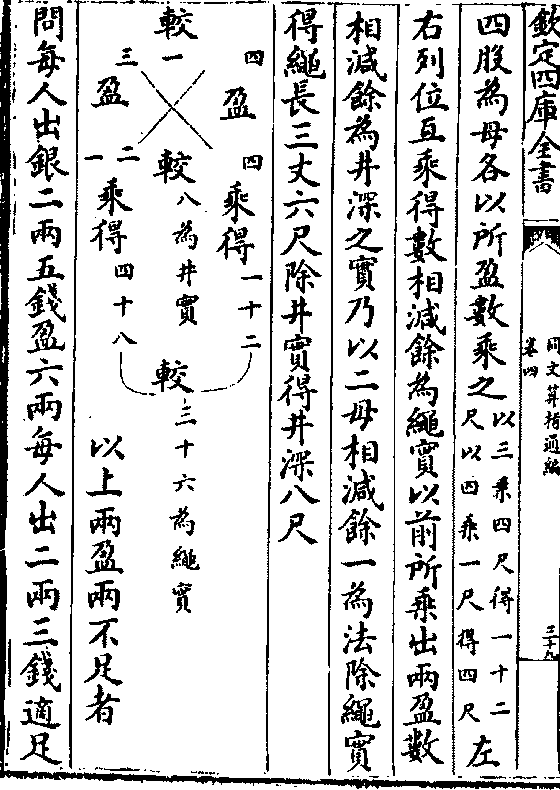 欽定四庫全書
同文算指通編
卷四
三十九
四股為母各以所盈數乘之以三乘四尺得一十二尺以四乘一尺得四尺左
右列位互乘得數相減餘為繩實以前所乘出兩盈數
相減餘為井深之實乃以二母相減餘一為法除繩實
得繩長三丈六尺除井實得井深八尺
四 盈 四 乘得 一十二
較 一 較 八為井實 較 三十六為繩實
三 盈 一二 乘得 四十八
以上兩盈兩不足者
問每人出銀二兩五錢盈六兩每人出二兩三錢適足